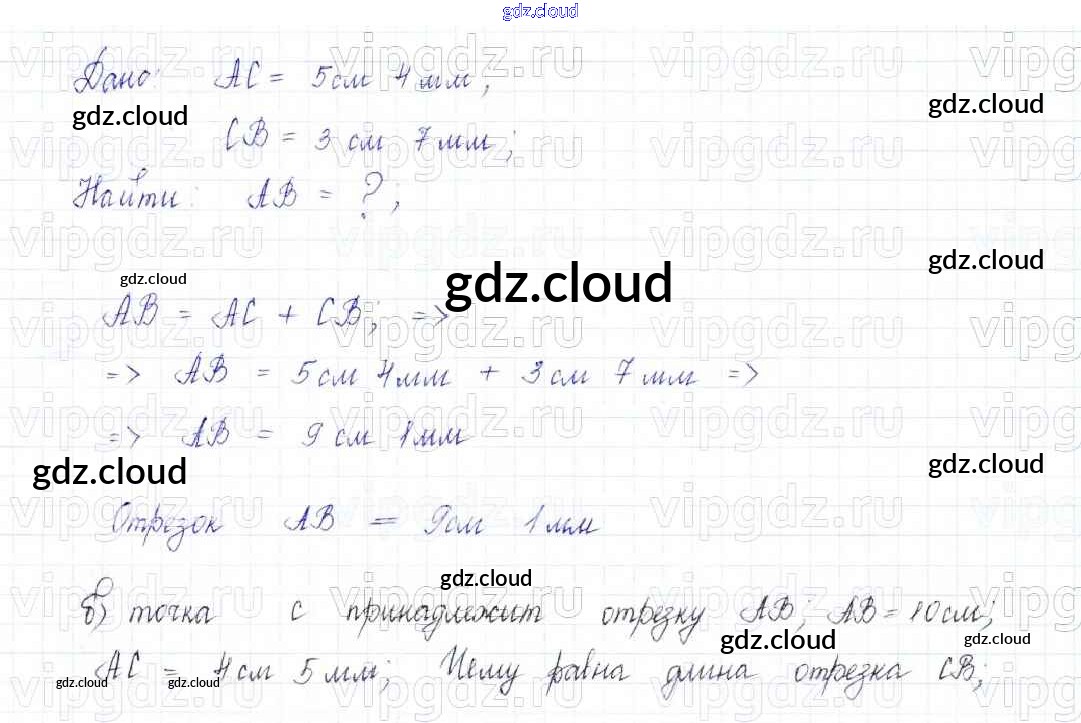 gdz.cloud
Дано: AC = 5 см 4 мм;
gdz.cloud gdz.cloud
CB = 3 см 7 мм;
Найти: AB = ?;
gdz.cloud
gdz.cloud gdz.cloud
AB = AC + CB; =>
=> AB = 5 см 4 мм + 3 см 7 мм =>
=> AB = 9 см 1 мм
gdz.cloud gdz.cloud
Отрезок AB = 9 см 1 мм
gdz.cloud
б) точка с принадлежит отрезку AB; AB = 10 см;
gdz.cloud gdz.cloud
AC = 4 см 5 мм; Чему равна длина отрезка CB;
gdz.cloud gdz.cloud